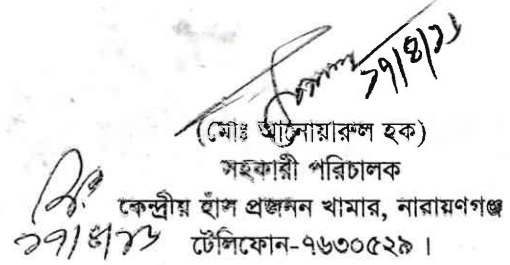 (মোঃ আনোয়ারুল হক)
সহকারী পরিচালক
কেন্দ্রীয় হাঁস প্রজনন খামার, নারায়ণগঞ্জ
টেলিফোন-৭৬৩০৫২৯ ।